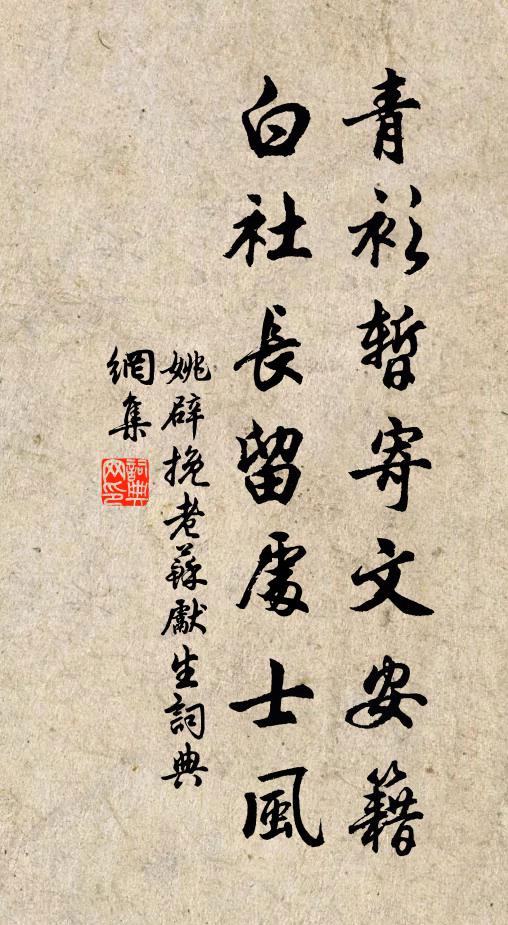 青衫暫寄文安籍
白社長留處士風
姚辟挽老蘇獻生詞典
網集
詞典網印